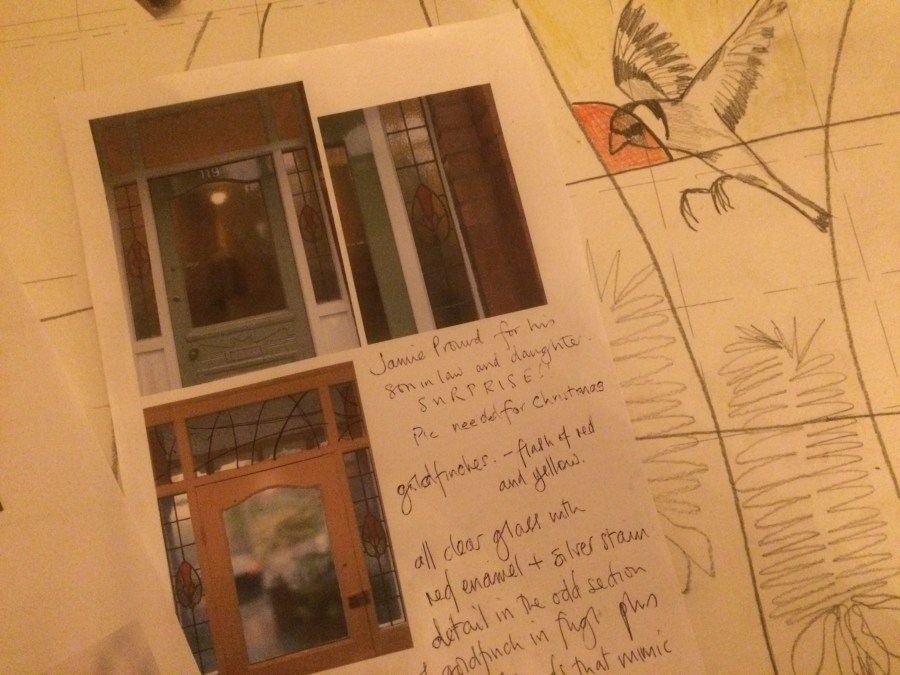 119
Jamie Proud for his
son in law and daughter.
SURPRISE!!
Pic needed for Christmas
goldfinches. - flash of red
and yellow.
all clear glass with
red enamel + silver stain
detail in the odd section
goldfinch in plus
that mimic